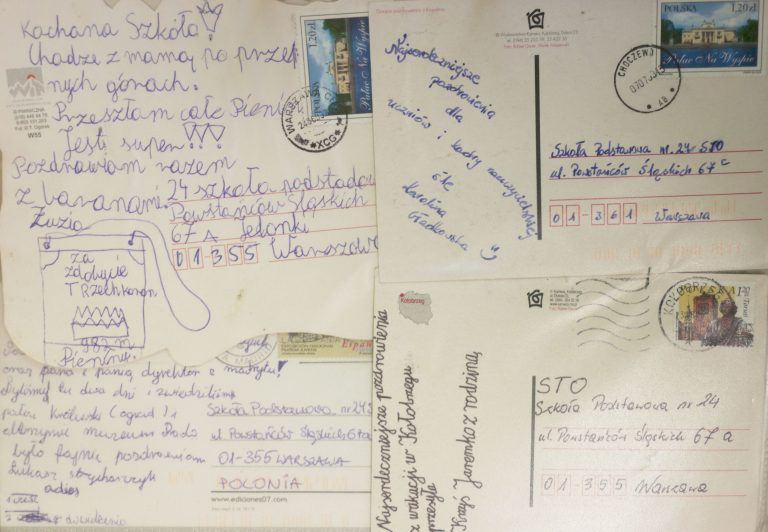 Kochana Szkoło!
Chodzę z mamą po przep
nych górach.
Przeszłam całe Pieni
Jest super!!!
Pozdrawiam razem
z baranami.
Zuzia
za
zdobycie
Trzech koron
982 m
Pieniny
24 szkoła podstawo
Powstańców Śląskich
67 A Jelonki
01-355 Warszawa
W55
1,20zł
POLSKA
Pałac Na Wyspie
WARSZAWA
Najserdeczniejsze
pozdrowienia
dla
uczniów i kadry nauczycielskiej
śle
Karolina
POLSKA
1,20zł
Pałac Na Wyspie
CHOCZEWO
Szkoła Podstawowa nr. 24 STO
ul. Powstańców Śląskich 67 c
01-361 Warszawa
oraz pana i panią dyrektor z madrytu!
Byliśmy tu dwa dni i zwiedziliśmy
pałac Królewski (ogród) i
muzeum Prado
było fajnie pozdrawiam
Łukasz
adios
España
Szkoła Podstawowa nr 24 S
ul. Powstańców Śląskich 67a
01-355 WARSZAWA
POLONIA
www.ediciones07.com
Kołobrzeg
Najserdeczniejsze pozdrowienia
z wakacji w Kołobrzegu
przesyła
Krzyś Jaremko z rodziną
STO
Szkoła Podstawowa nr 24
ul. Powstańców Śląskich 67 a
01-355 Warszawa